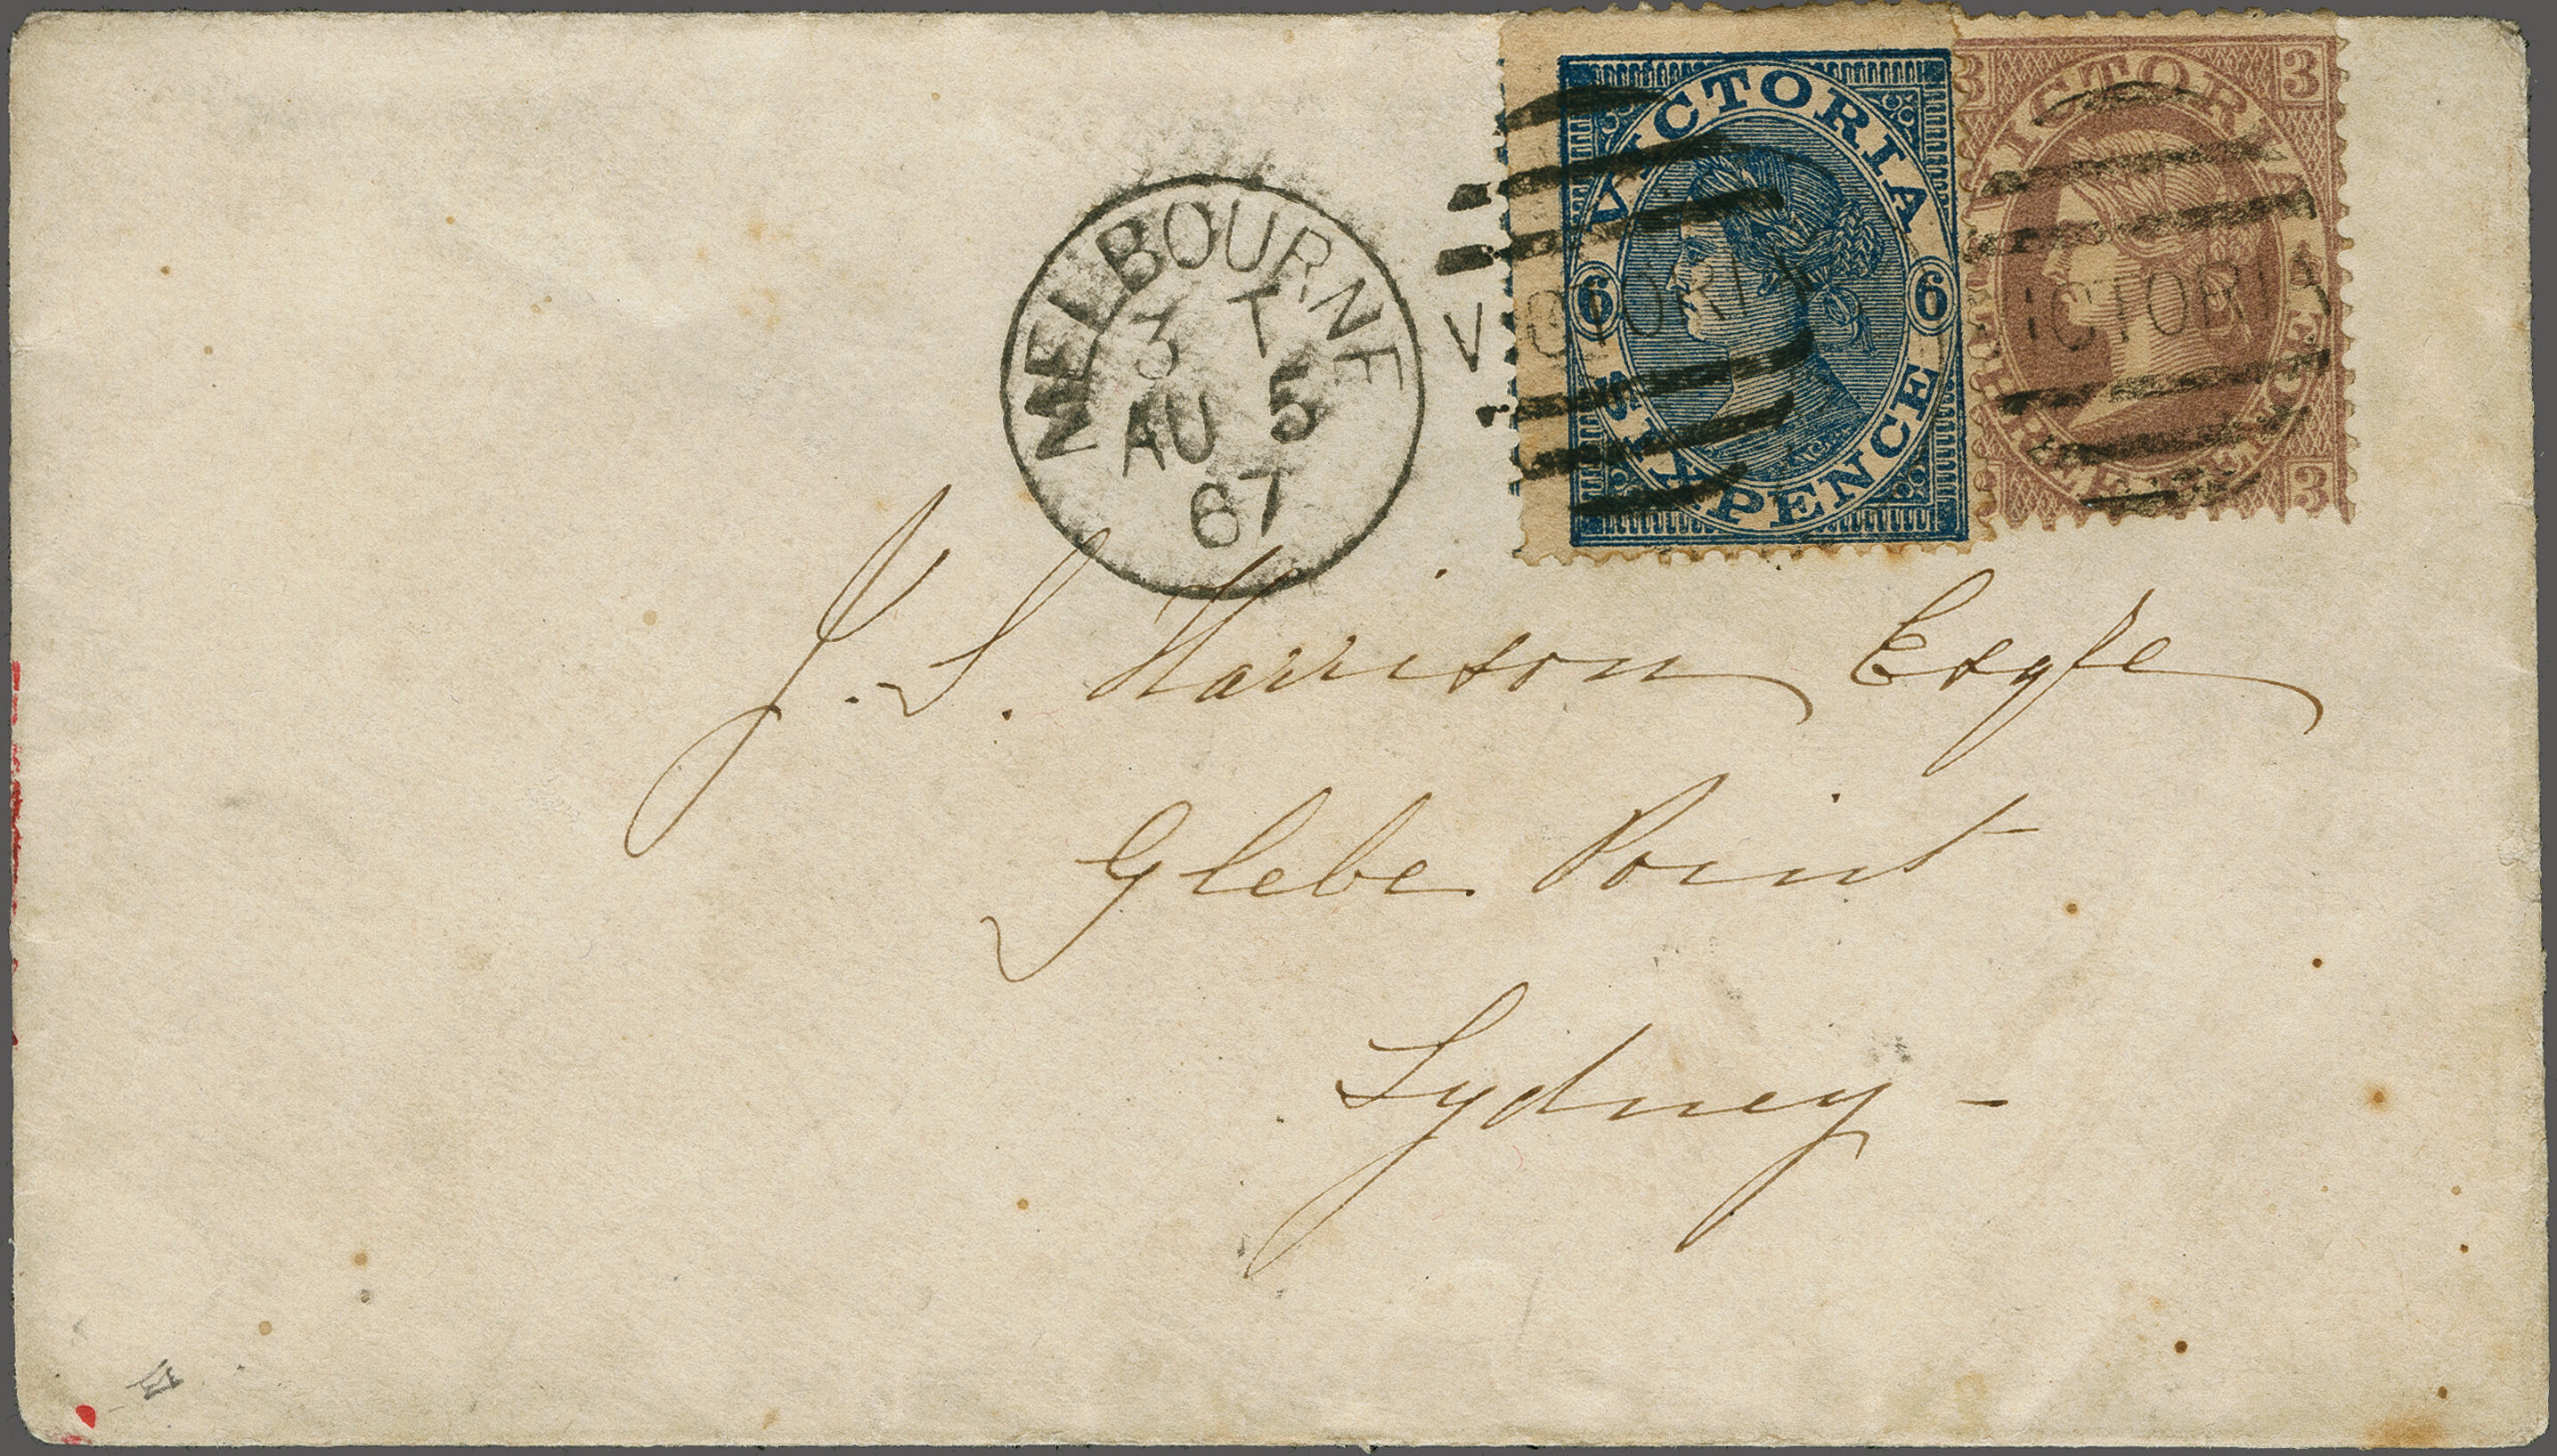 MELBOURNE
3 T
AU 5
67
VICTORIA
6 6
SIXPENCE
VICTORIA
VICTORIA
3 3
THREE PENCE
3
VICTORIA
J. S. Harrison Esqre
Glebe Point
Sydney –